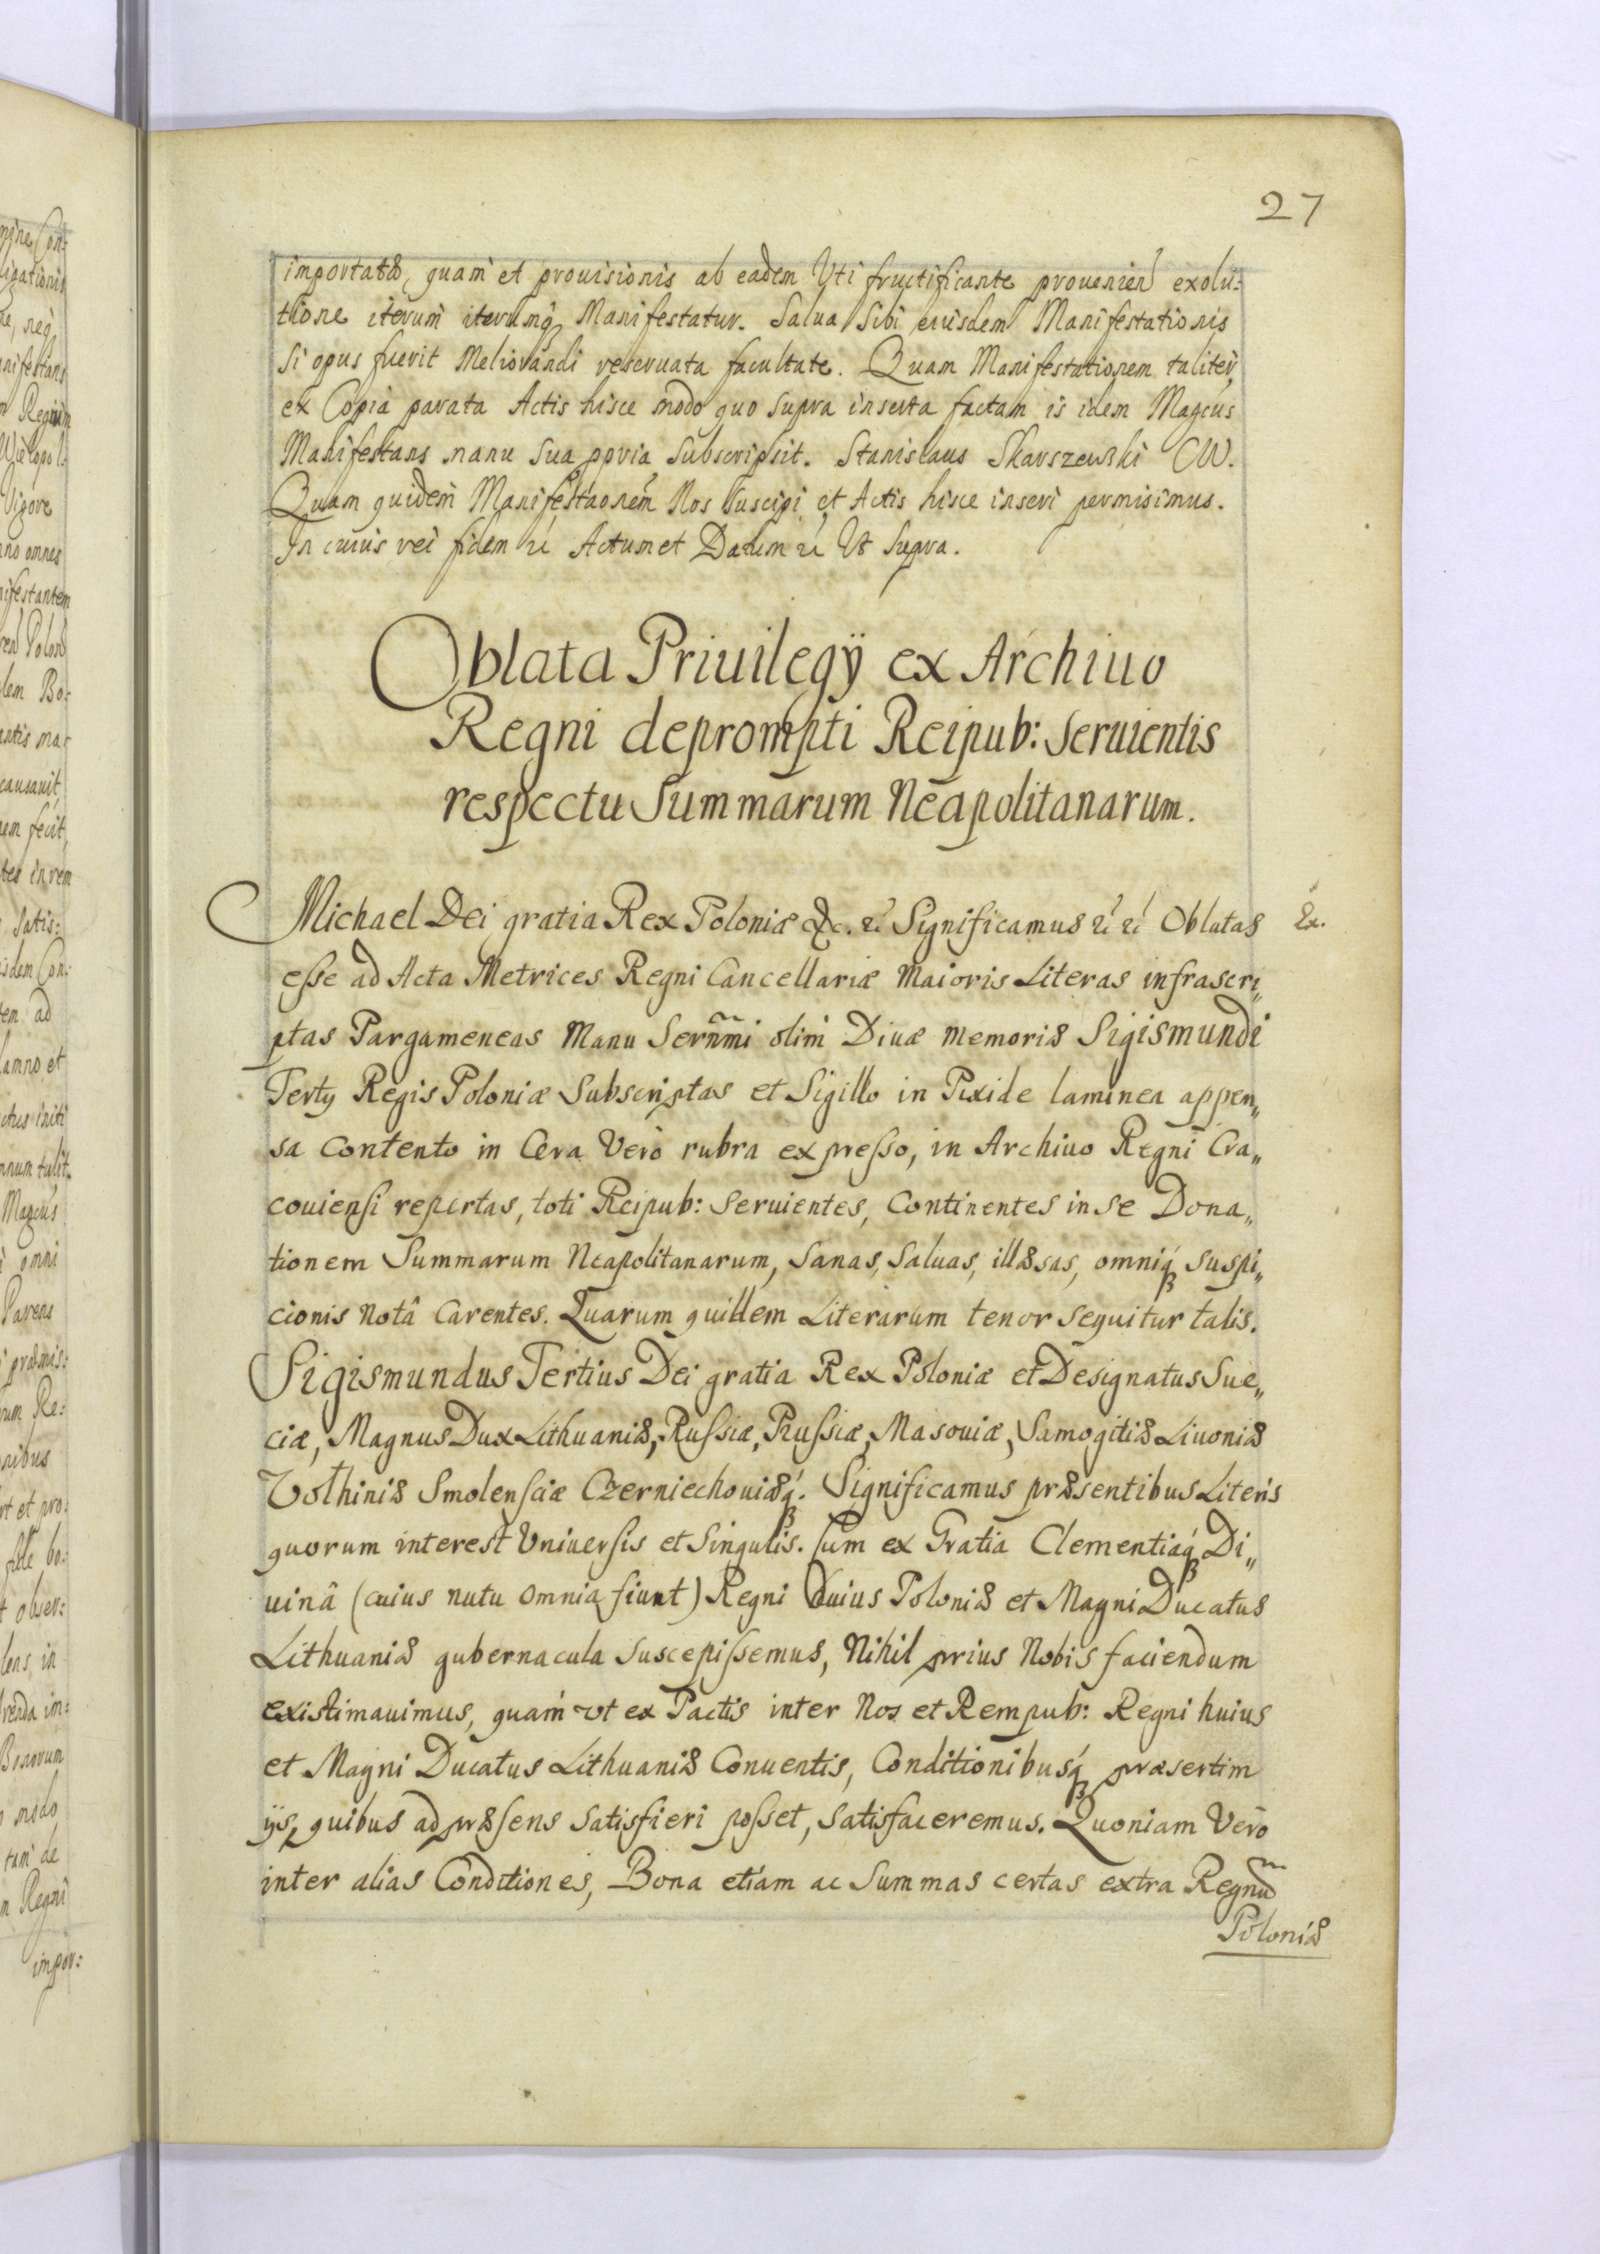 27
importatæ, quam et prouisionis ab eadem Uti fructificante prouenien exolu:
tione iterum iterumq Manifestatur. Salua Sibi eiusdem Manifestationis
Si opus fuerit Meliorandi reseruata facultate. Quam Manifestationem taliter
ex Copia parata Actis hisce modo quo Supra inserta factam is idem Magcus
Manifestans manu Sua ppria Subscripsit. Stanislaus Skarszewski CW.
Quam quidem Manifestaonem Nos Suscipi et Actis hisce inseri permisimus.
In cuius rei fidem &c Actum et Datum &c Ut Supra.
Oblata Priuilegÿ ex Archiuo
Regni deprompti Reipub: Seruientis
respectu Summarum Neapolitanarum.
Michael Dei gratia Rex Poloniæ &c. &c Significamus &c &c Oblatas
Ex.
esse ad Acta Metrices Regni Cancellariæ Maioris Literas infrascri„
ptas Pargameneas Manu Sernmi olim Diuæ Memoriæ Sigismundi
Tertÿ Regis Poloniæ Subscriptas et Sigillo in Pixide laminea appen„
sa Contento in Cera Vero rubra expresso, in Archiuo Regni Cra„
couiensi repertas, toti Reipub: Seruientes, Continentes in se Dona„
tionem Summarum Neapolitanarum, Sanas, Saluas, illæsas, omniq Suspi„
cionis Notâ Carentes. Quarum quidem Literarum tenor sequitur talis.
Sigismundus Tertius Dei gratia Rex Poloniæ et Designatus Sue„
ciæ, Magnus Dux Lithuaniæ, Russiæ, Prussiæ, Masouiæ, Samogitiæ Liuoniæ
Volhiniæ Smolensciæ Czerniechouiæq. Significamus præsentibus Literis
quorum interest Uniuersis et Singulis. Cum ex Gratia Clementiaq Di„
uinâ (cuius nutu omnia fiunt) Regni huius Poloniæ et Magni Ducatus
Lithuaniæ gubernacula Suscepissemus, Nihil prius Nobis faciendum
existimauimus, quam vt ex Pactis inter Nos et Rempub: Regni huius
et Magni Ducatus Lithuaniæ Conuentis, Conditionibusq præsertim
ijs, quibus ad præsens Satisfieri posset, Satisfaceremus. Quoniam Vero
inter alias Conditiones, Bona etiam ac Summas certas extra Regnu
Poloniæ